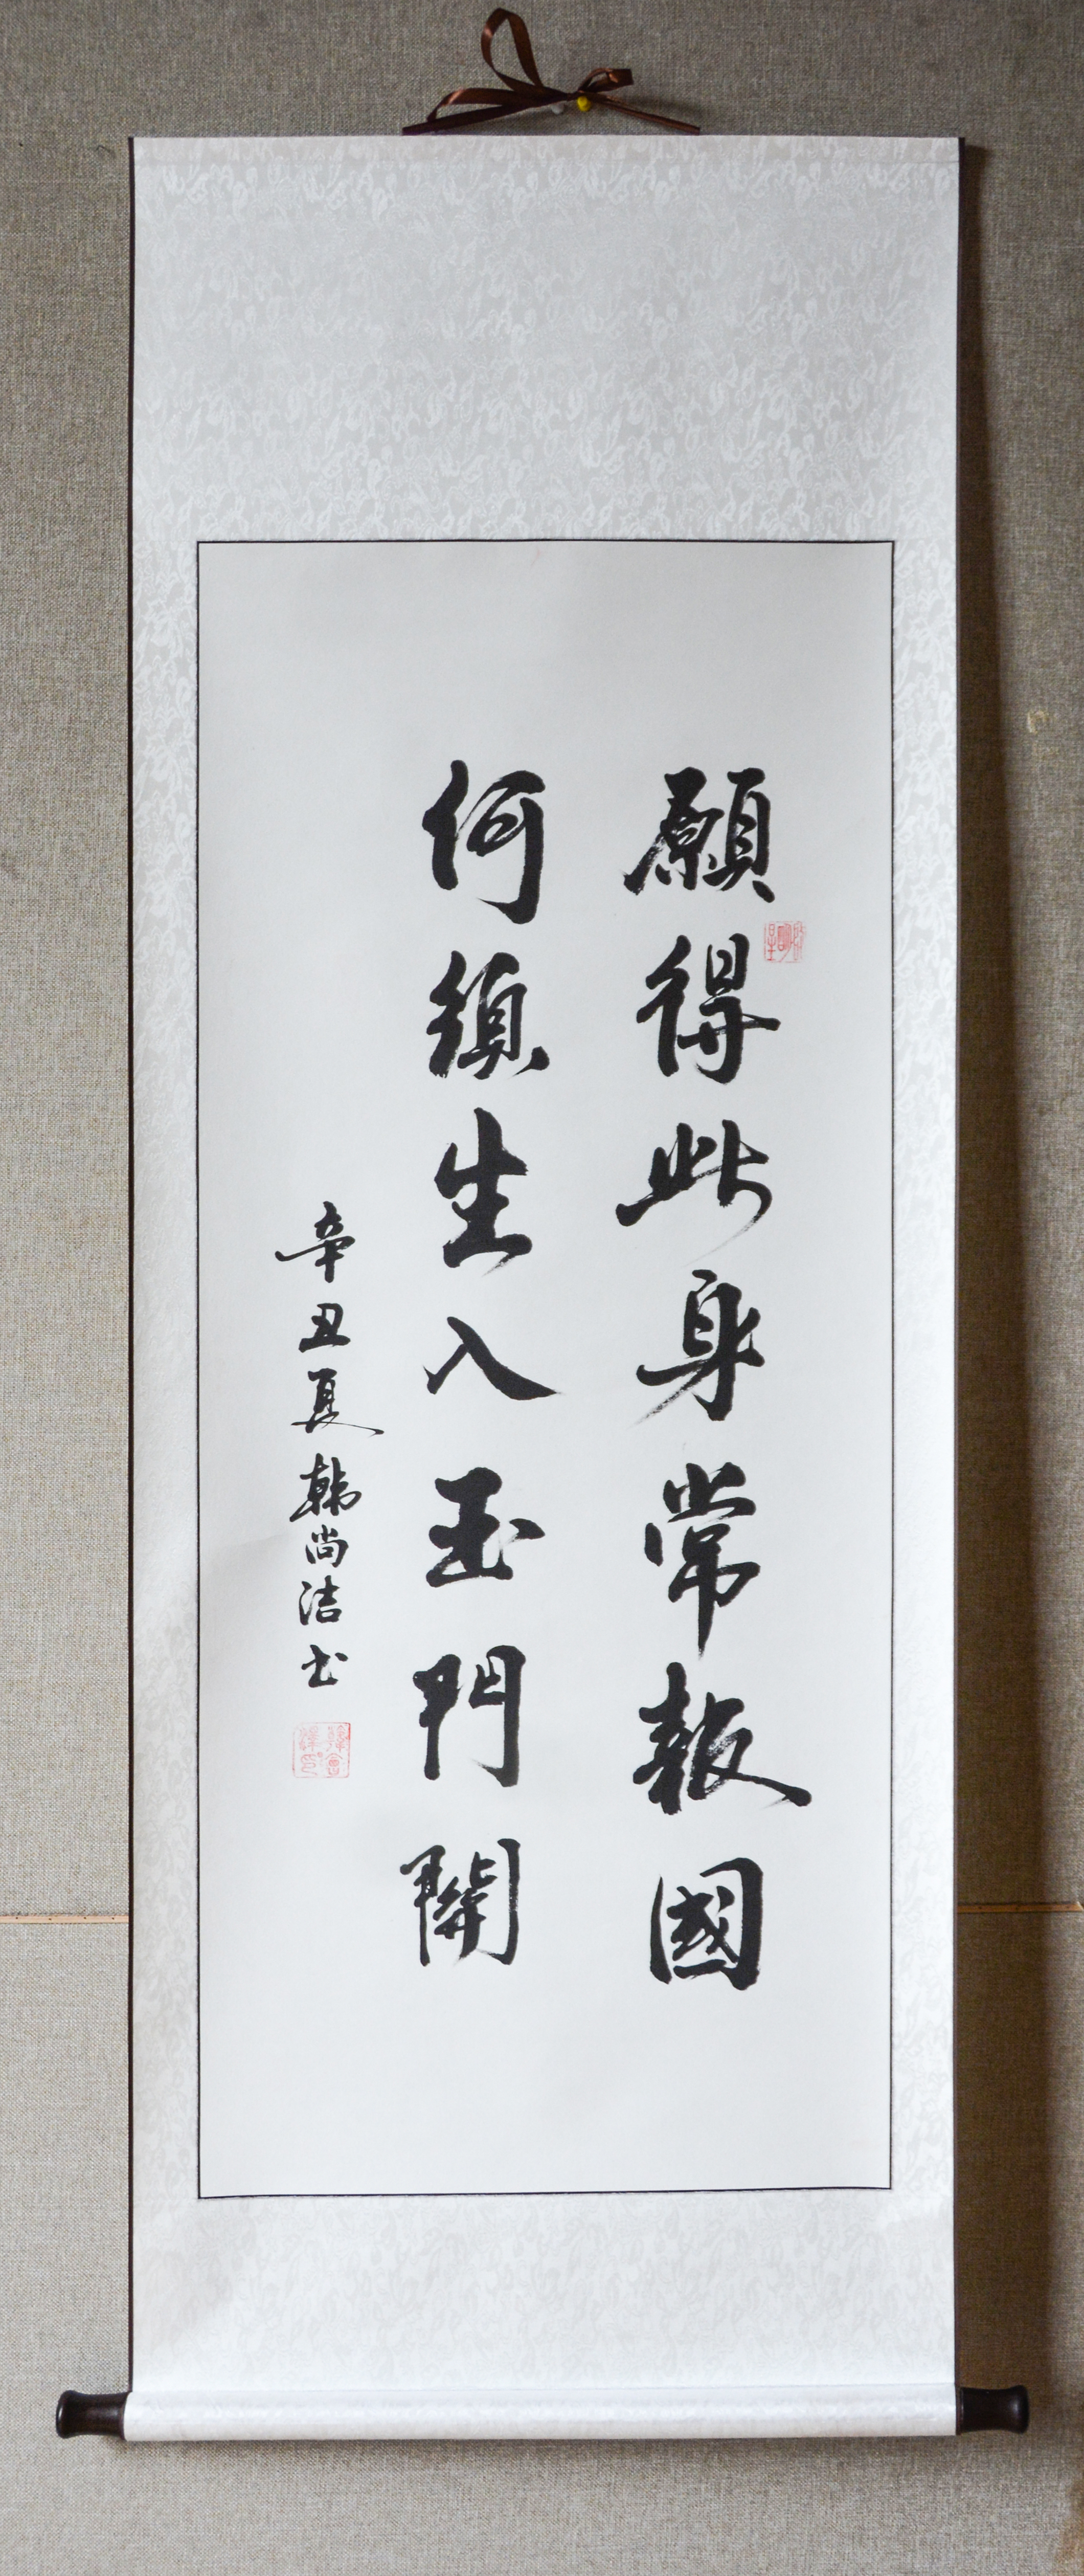 願得此身常報國
何須生入玉門關
辛丑夏韩尚洁书